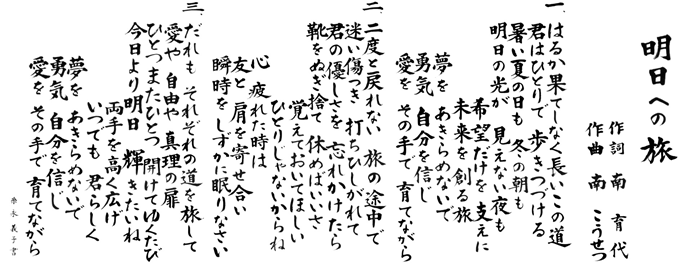 明日への旅
作詞 南 育代
作曲 南 こうせつ
一、はるか果てしなく長いこの道
君はひとりで 歩きつづける
暑い夏の日も 冬の朝も
明日の光が 見えない夜も
希望だけを 支えに
未来を創る旅
夢を あきらめないで
勇気 自分を信じ
愛を その手で 育てながら
二、二度と戻れない 旅の途中で
迷い傷つき 打ちひしがれて
君の優しさを 忘れかけたら
靴をぬぎ捨て 休めばいいさ
覚えておいてほしい
ひとりじゃないからね
心 疲れた時は
友と 肩を寄せ合い
瞬時を しずかに眠りなさい
三、だれも それぞれの道を旅して
愛や 自由や 真理の扉
ひとつまたひとつ 開けてゆくたび
今日より明日 輝きたいね
両手を高く広げ
いつでも 君らしく
夢を あきらめないで
勇気 自分を信じ
愛を その手で 育てながら